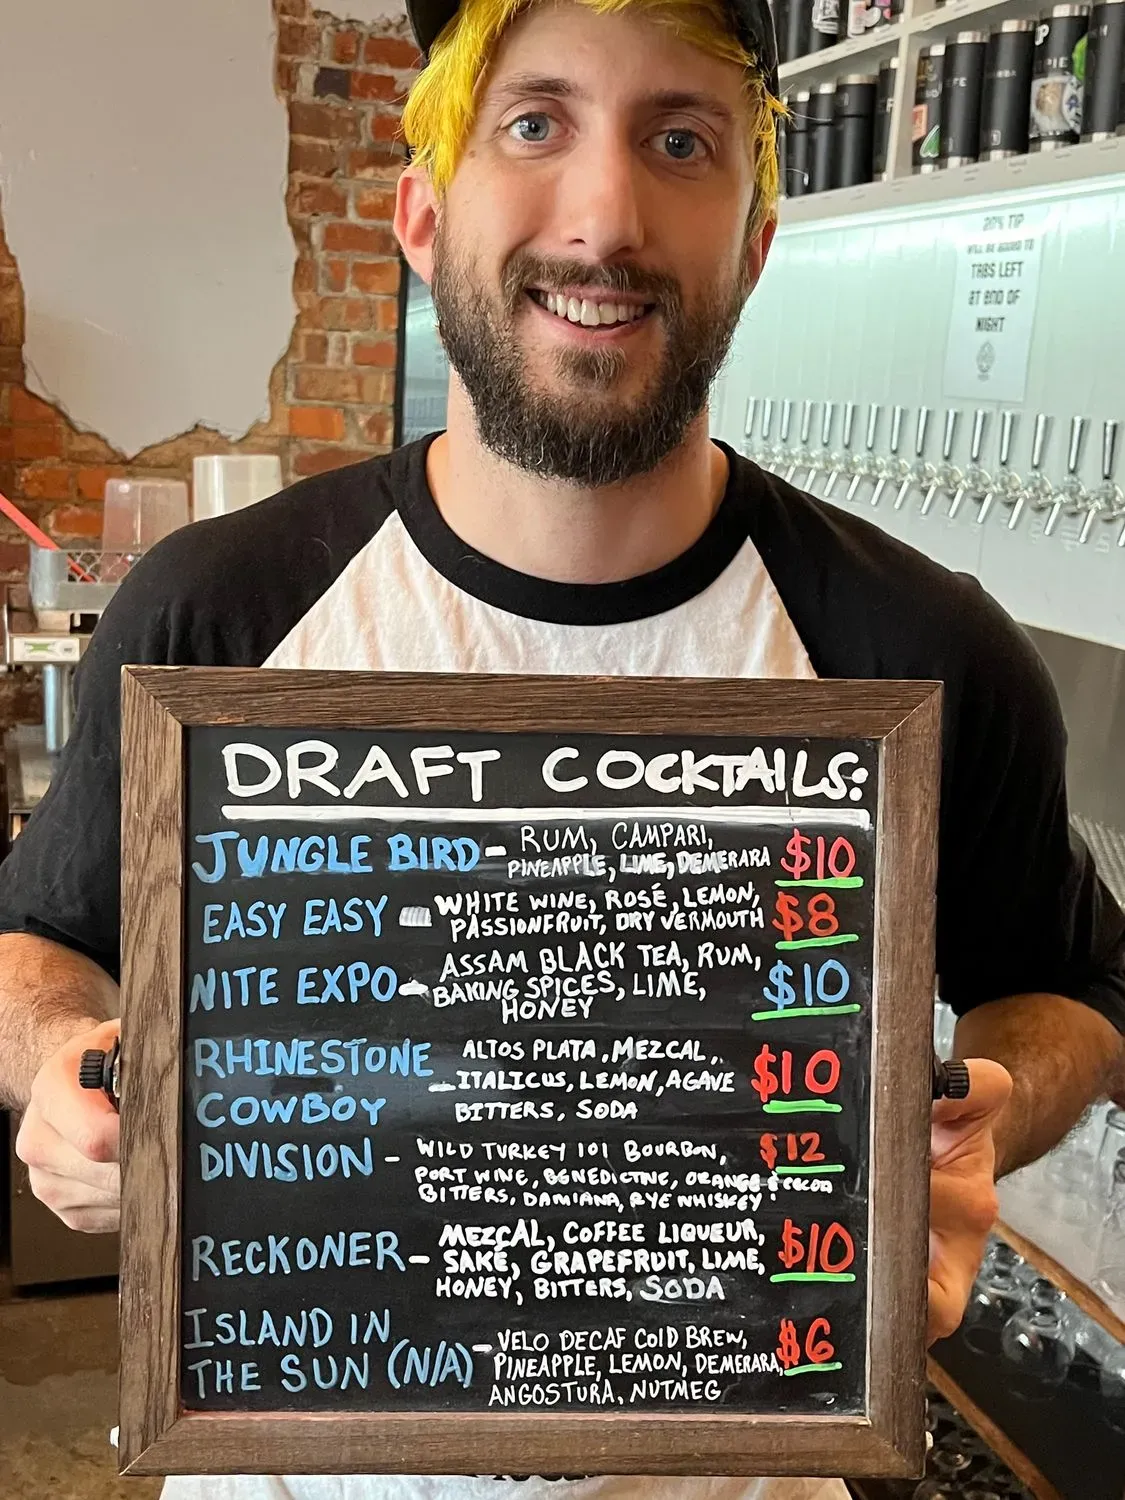 20% TIP
WILL BE ADDED TO
TABS LEFT
AT END OF
NIGHT
DRAFT COCKTAILS:
JUNGLE BIRD - RUM, CAMPARI, $10
PINEAPPLE, LIME, DEMERARA
EASY EASY - WHITE WINE, ROSÉ, LEMON, $8
PASSIONFRUIT, DRY VERMOUTH
NITE EXPO - ASSAM BLACK TEA, RUM, $10
BAKING SPICES, LIME,
HONEY
RHINESTONE ALTOS PLATA, MEZCAL, $10
- ITALICUS, LEMON, AGAVE
COWBOY BITTERS, SODA
DIVISION - WILD TURKEY 101 BOURBON, $12
PORT WINE, BENEDICTINE, ORANGE & COCOA
BITTERS, DAMIANA, RYE WHISKEY!
RECKONER - MEZCAL, COFFEE LIQUEUR, $10
SAKÉ, GRAPEFRUIT, LIME,
HONEY, BITTERS, SODA
ISLAND IN - VELO DECAF COLD BREW, $6
THE SUN (N/A) PINEAPPLE, LEMON, DEMERARA,
ANGOSTURA, NUTMEG